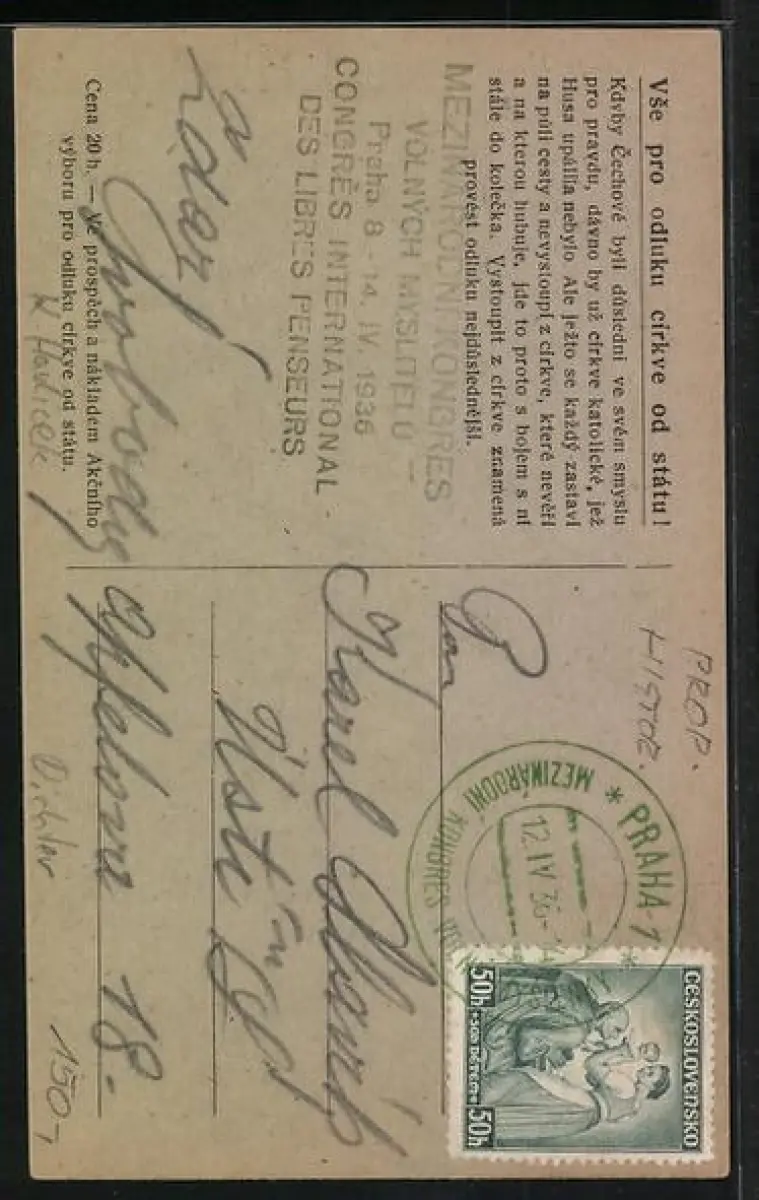 Vše pro odluku církve od státu!
Kdyby Čechové byli důslední ve svém smyslu
pro pravdu, dávno by už církve katolické, jež
Husa upálila nebylo. Ale ježto se každý zastaví
na půli cesty a nevystoupí z církve, které nevěří
a na kterou hubuje, jde to proto s bojem s ní
stále do kolečka. Vystoupit z církve znamená
provést odluku nejdůslednější.
MEZINÁRODNÍ KONGRES
VOLNÝCH MYSLITELŮ —
Praha 8 - 14. IV 1936
CONGRÈS INTERNATIONAL
DES LIBRES PENSEURS.
Zdar!
Svobody
Cena 20 h. — Ve prospěch a nákladem Akčního
výboru pro odluku církve od státu.
K Havlíček
PROP.
HISTOR.
* PRAHA-1 *
MEZINÁRODNÍ KONGRES
12.IV 36-
ČESKOSLOVENSKO
50h +50h DĚTEM 50h
Pan
Karel
Ústí n/L
18.-
150,-